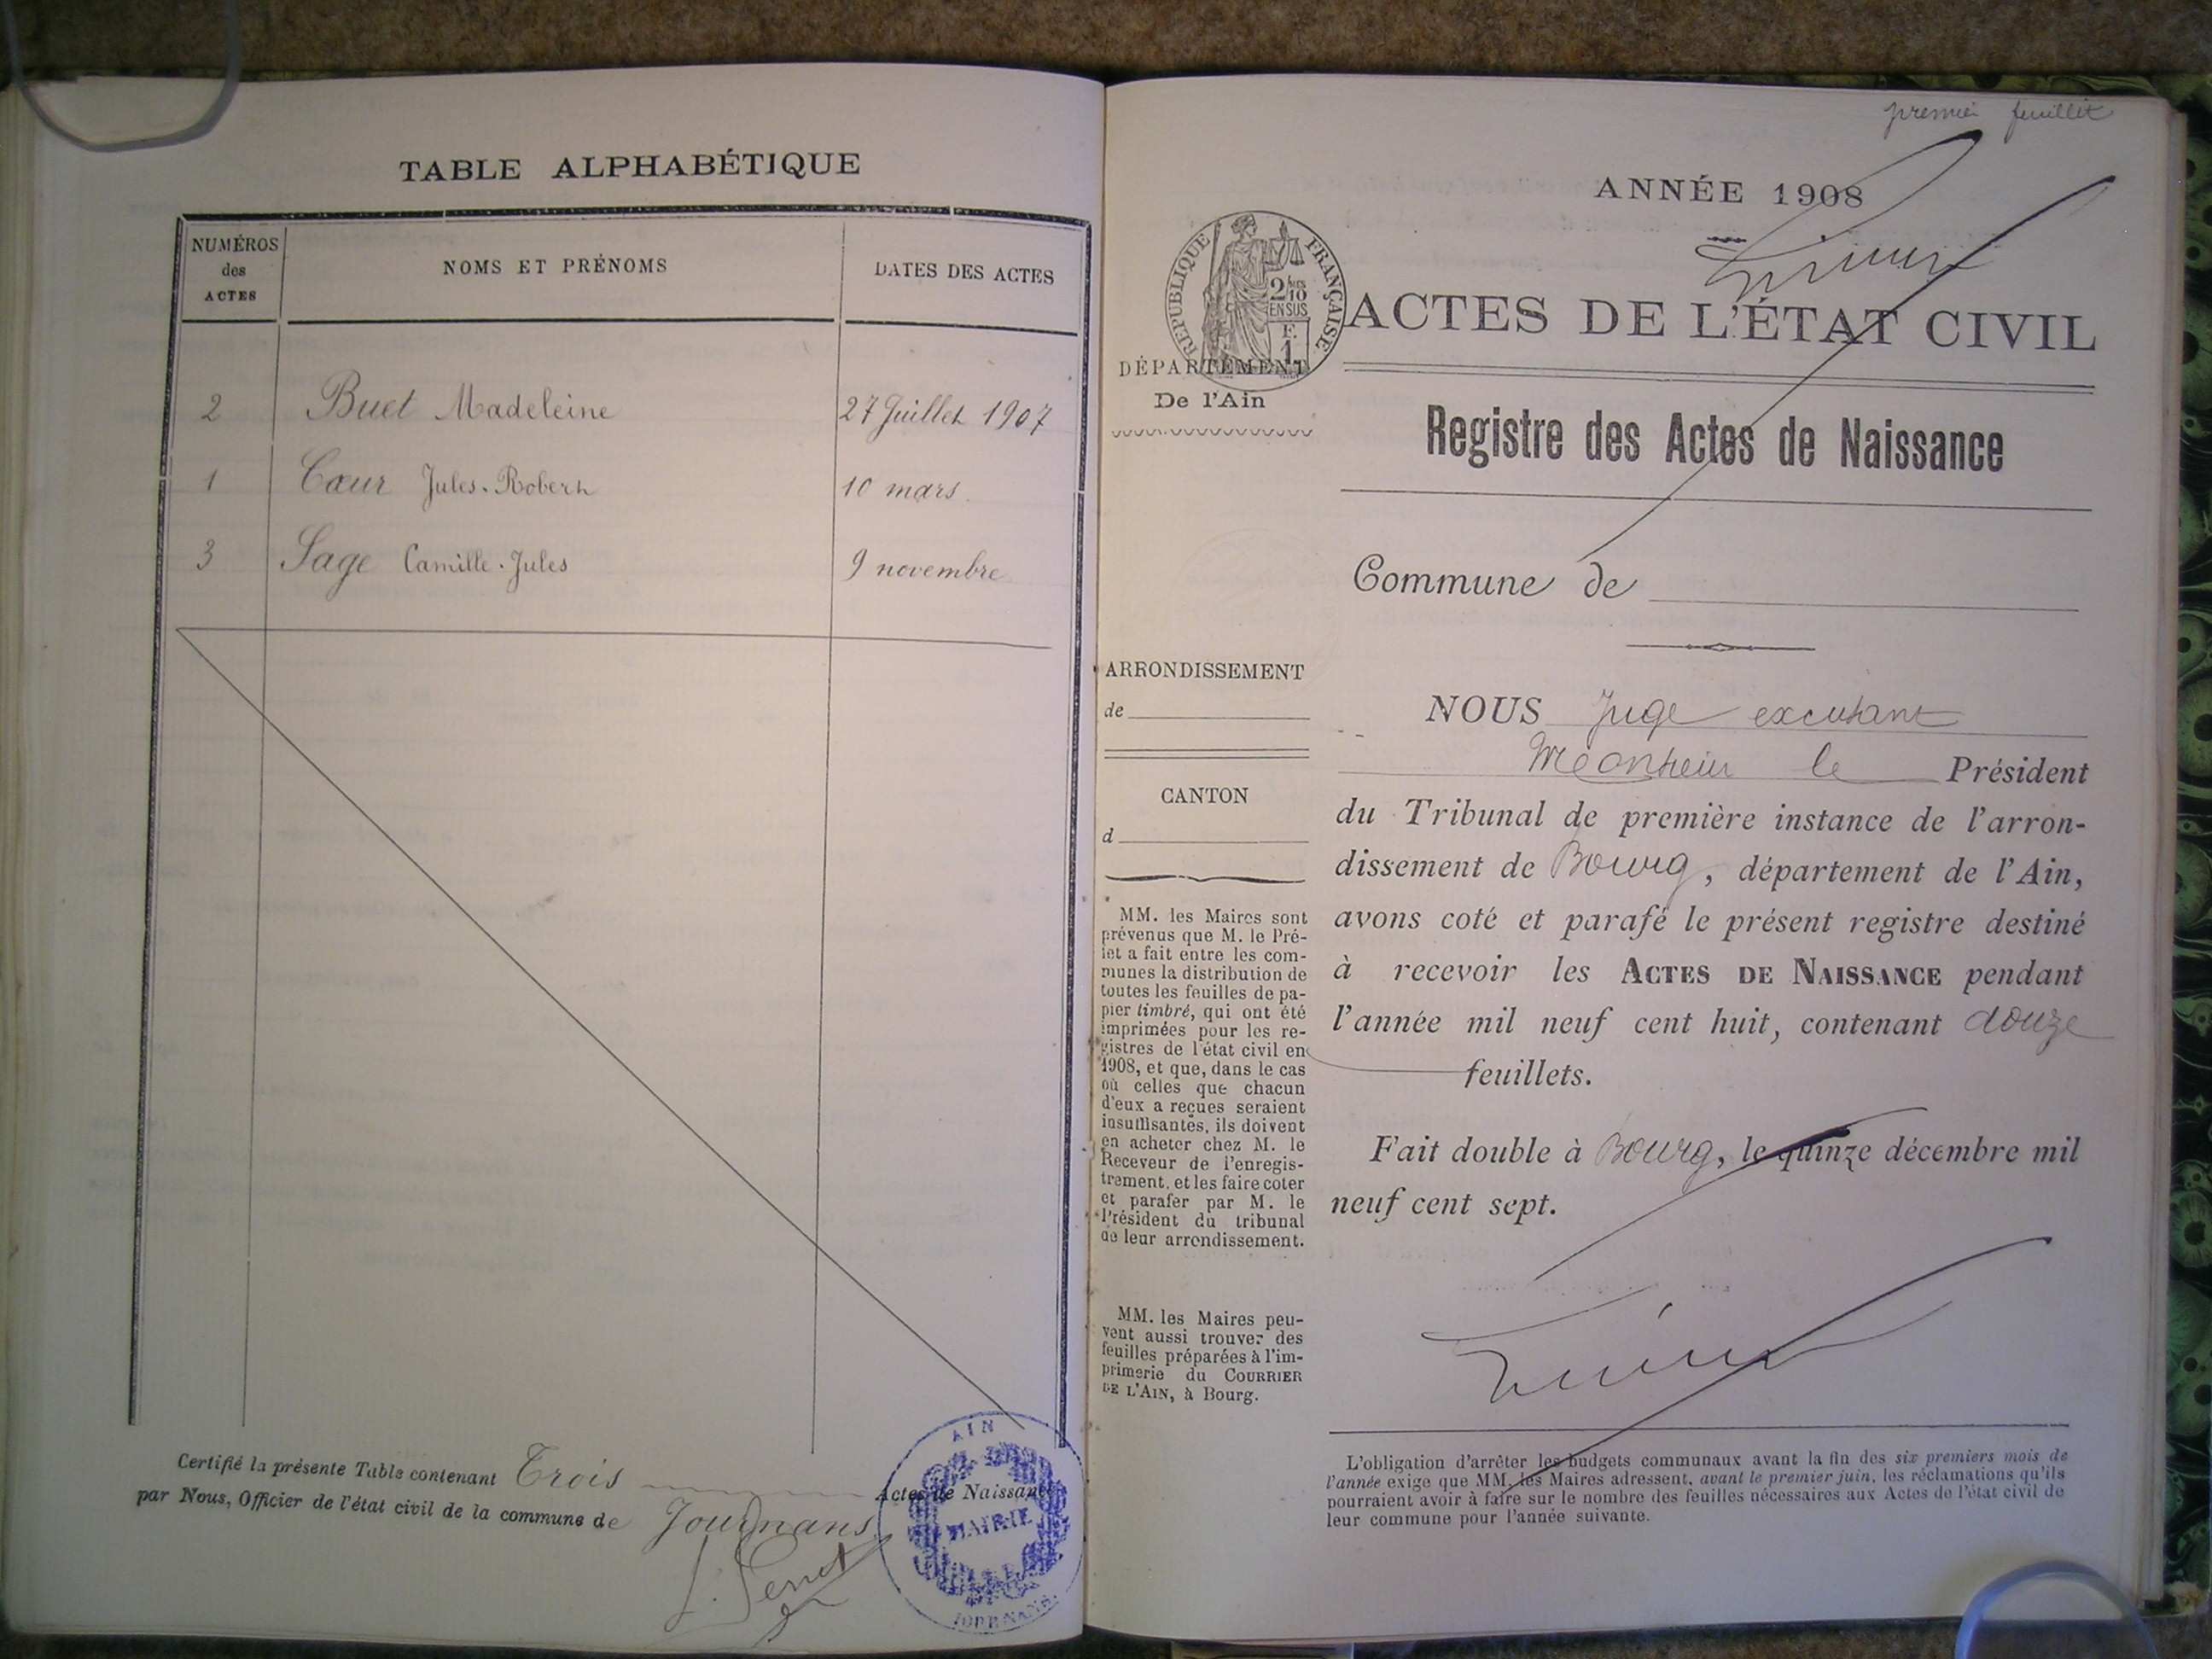 TABLE ALPHABÉTIQUE
NUMÉROS
des
ACTES
NOMS ET PRÉNOMS
DATES DES ACTES
2 Buet Madeleine 27 Juillet 1907
1 Cœur Jules-Robert 10 mars
3 Sage Camille-Jules 9 novembre
Certifié la présente Table contenant Trois Actes de Naissance
par Nous, Officier de l'état civil de la commune de Journans
AIN
MAIRIE
JOURNANS
premier feuillet
ANNÉE 1908
RÉPUBLIQUE FRANÇAISE
2/10
EN SUS
F.
1
ACTES DE L'ÉTAT CIVIL
DÉPARTEMENT
De l'Ain
Registre des Actes de Naissance
Commune de
ARRONDISSEMENT
de
CANTON
d
MM. les Maires sont
prévenus que M. le Pré-
fet a fait entre les com-
munes la distribution de
toutes les feuilles de pa-
pier timbré, qui ont été
imprimées pour les re-
gistres de l'état civil en
1908, et que, dans le cas
où celles que chacun
d'eux a reçues seraient
insuffisantes, ils doivent
en acheter chez M. le
Receveur de l'enregis-
trement, et les faire coter
et parafer par M. le
Président du tribunal
de leur arrondissement.
MM. les Maires peu-
vent aussi trouver des
feuilles préparées à l'im-
primerie du COURRIER
DE L'AIN, à Bourg.
NOUS Juge
le Président
du Tribunal de première instance de l'arron-
dissement de Bourg, département de l'Ain,
avons coté et parafé le présent registre destiné
à recevoir les ACTES DE NAISSANCE pendant
l'année mil neuf cent huit, contenant douze
feuillets.
Fait double à Bourg, le quinze décembre mil
neuf cent sept.
L'obligation d'arrêter les budgets communaux avant la fin des six premiers mois de
l'année exige que MM. les Maires adressent, avant le premier juin, les réclamations qu'ils
pourraient avoir à faire sur le nombre des feuilles nécessaires aux Actes de l'état civil de
leur commune pour l'année suivante.